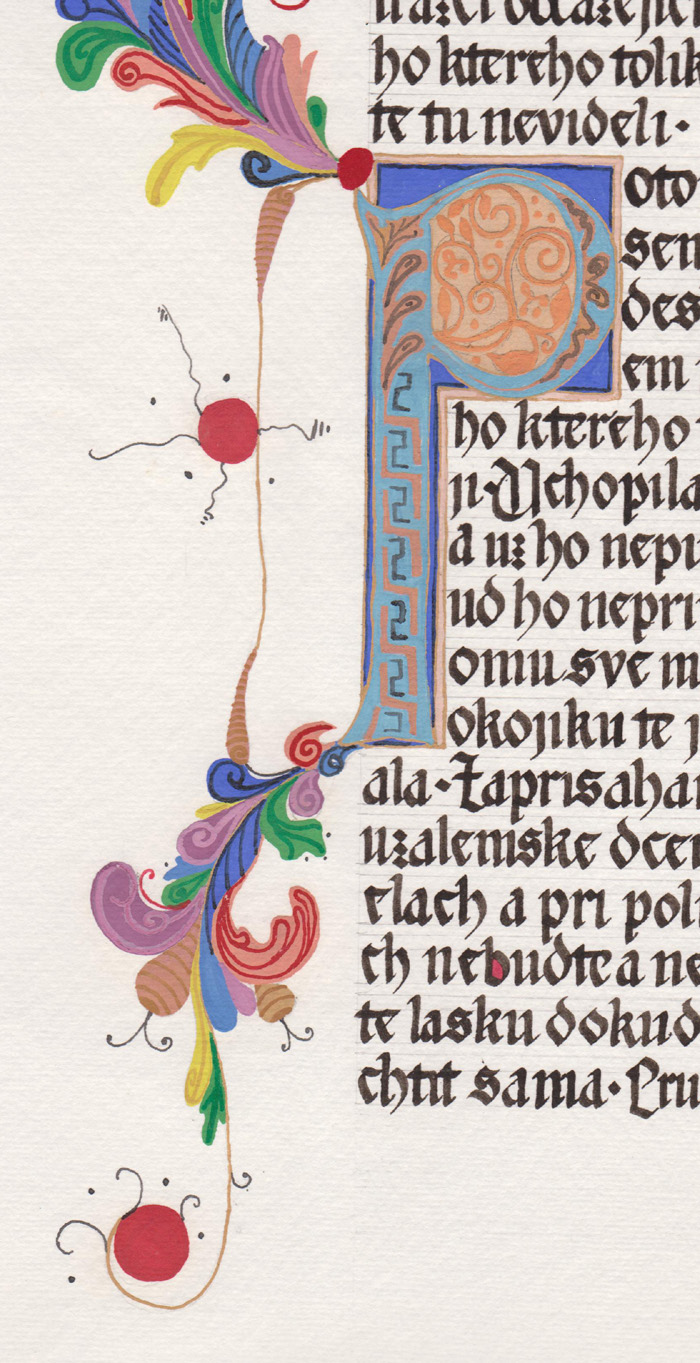 ho ktereho tolik
te tu nevideli·
Poto
sem
des
em
ho ktereho
ji·Uchopila
a uz ho nepu
ud ho nepri
omu sve m
okojiku te j
ala·Zaprisaham
uzalemske dcer
elach a pri pol
ch nebudte a ne
te lasku dokud
chtit sama·